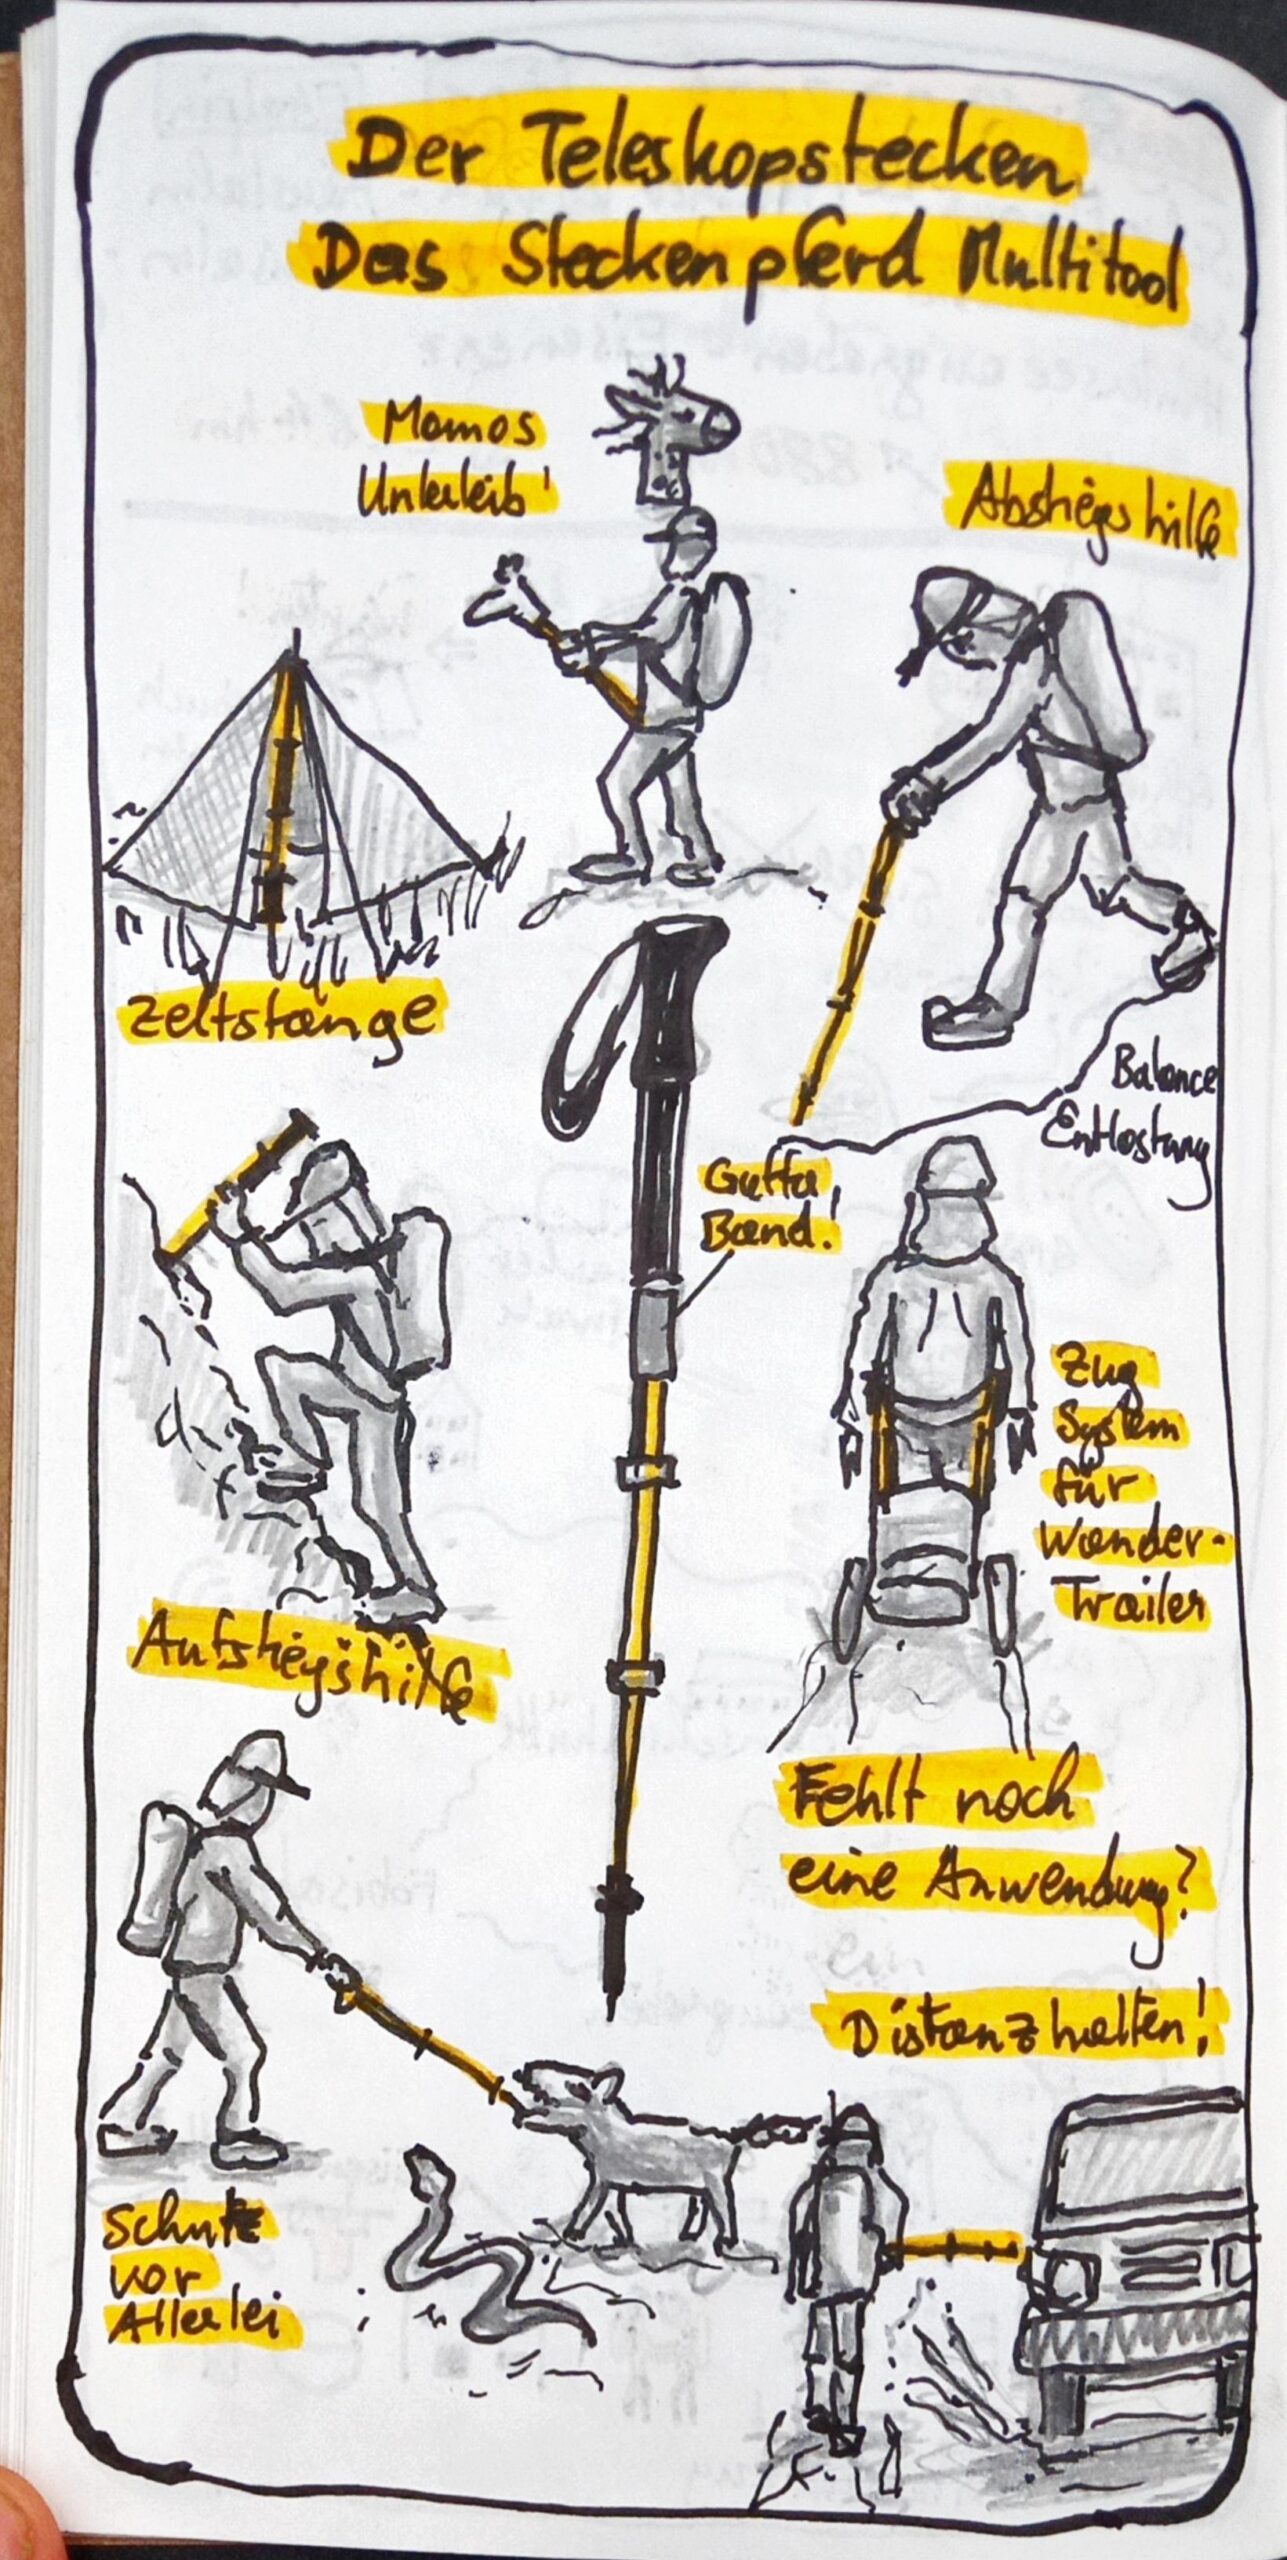 Der Teleskopstecken
Das Steckenpferd Multitool
Momos
Unterleib'
Abstiegshilfe
Zeltstange
Balance
Entlastung
Gaffa,
Band!
Zug
System
für
Wander-
Trailer
Aufstiegshilfe
Fehlt noch
eine Anwendung?
Distanz halten!
Schutz
vor
Allerlei